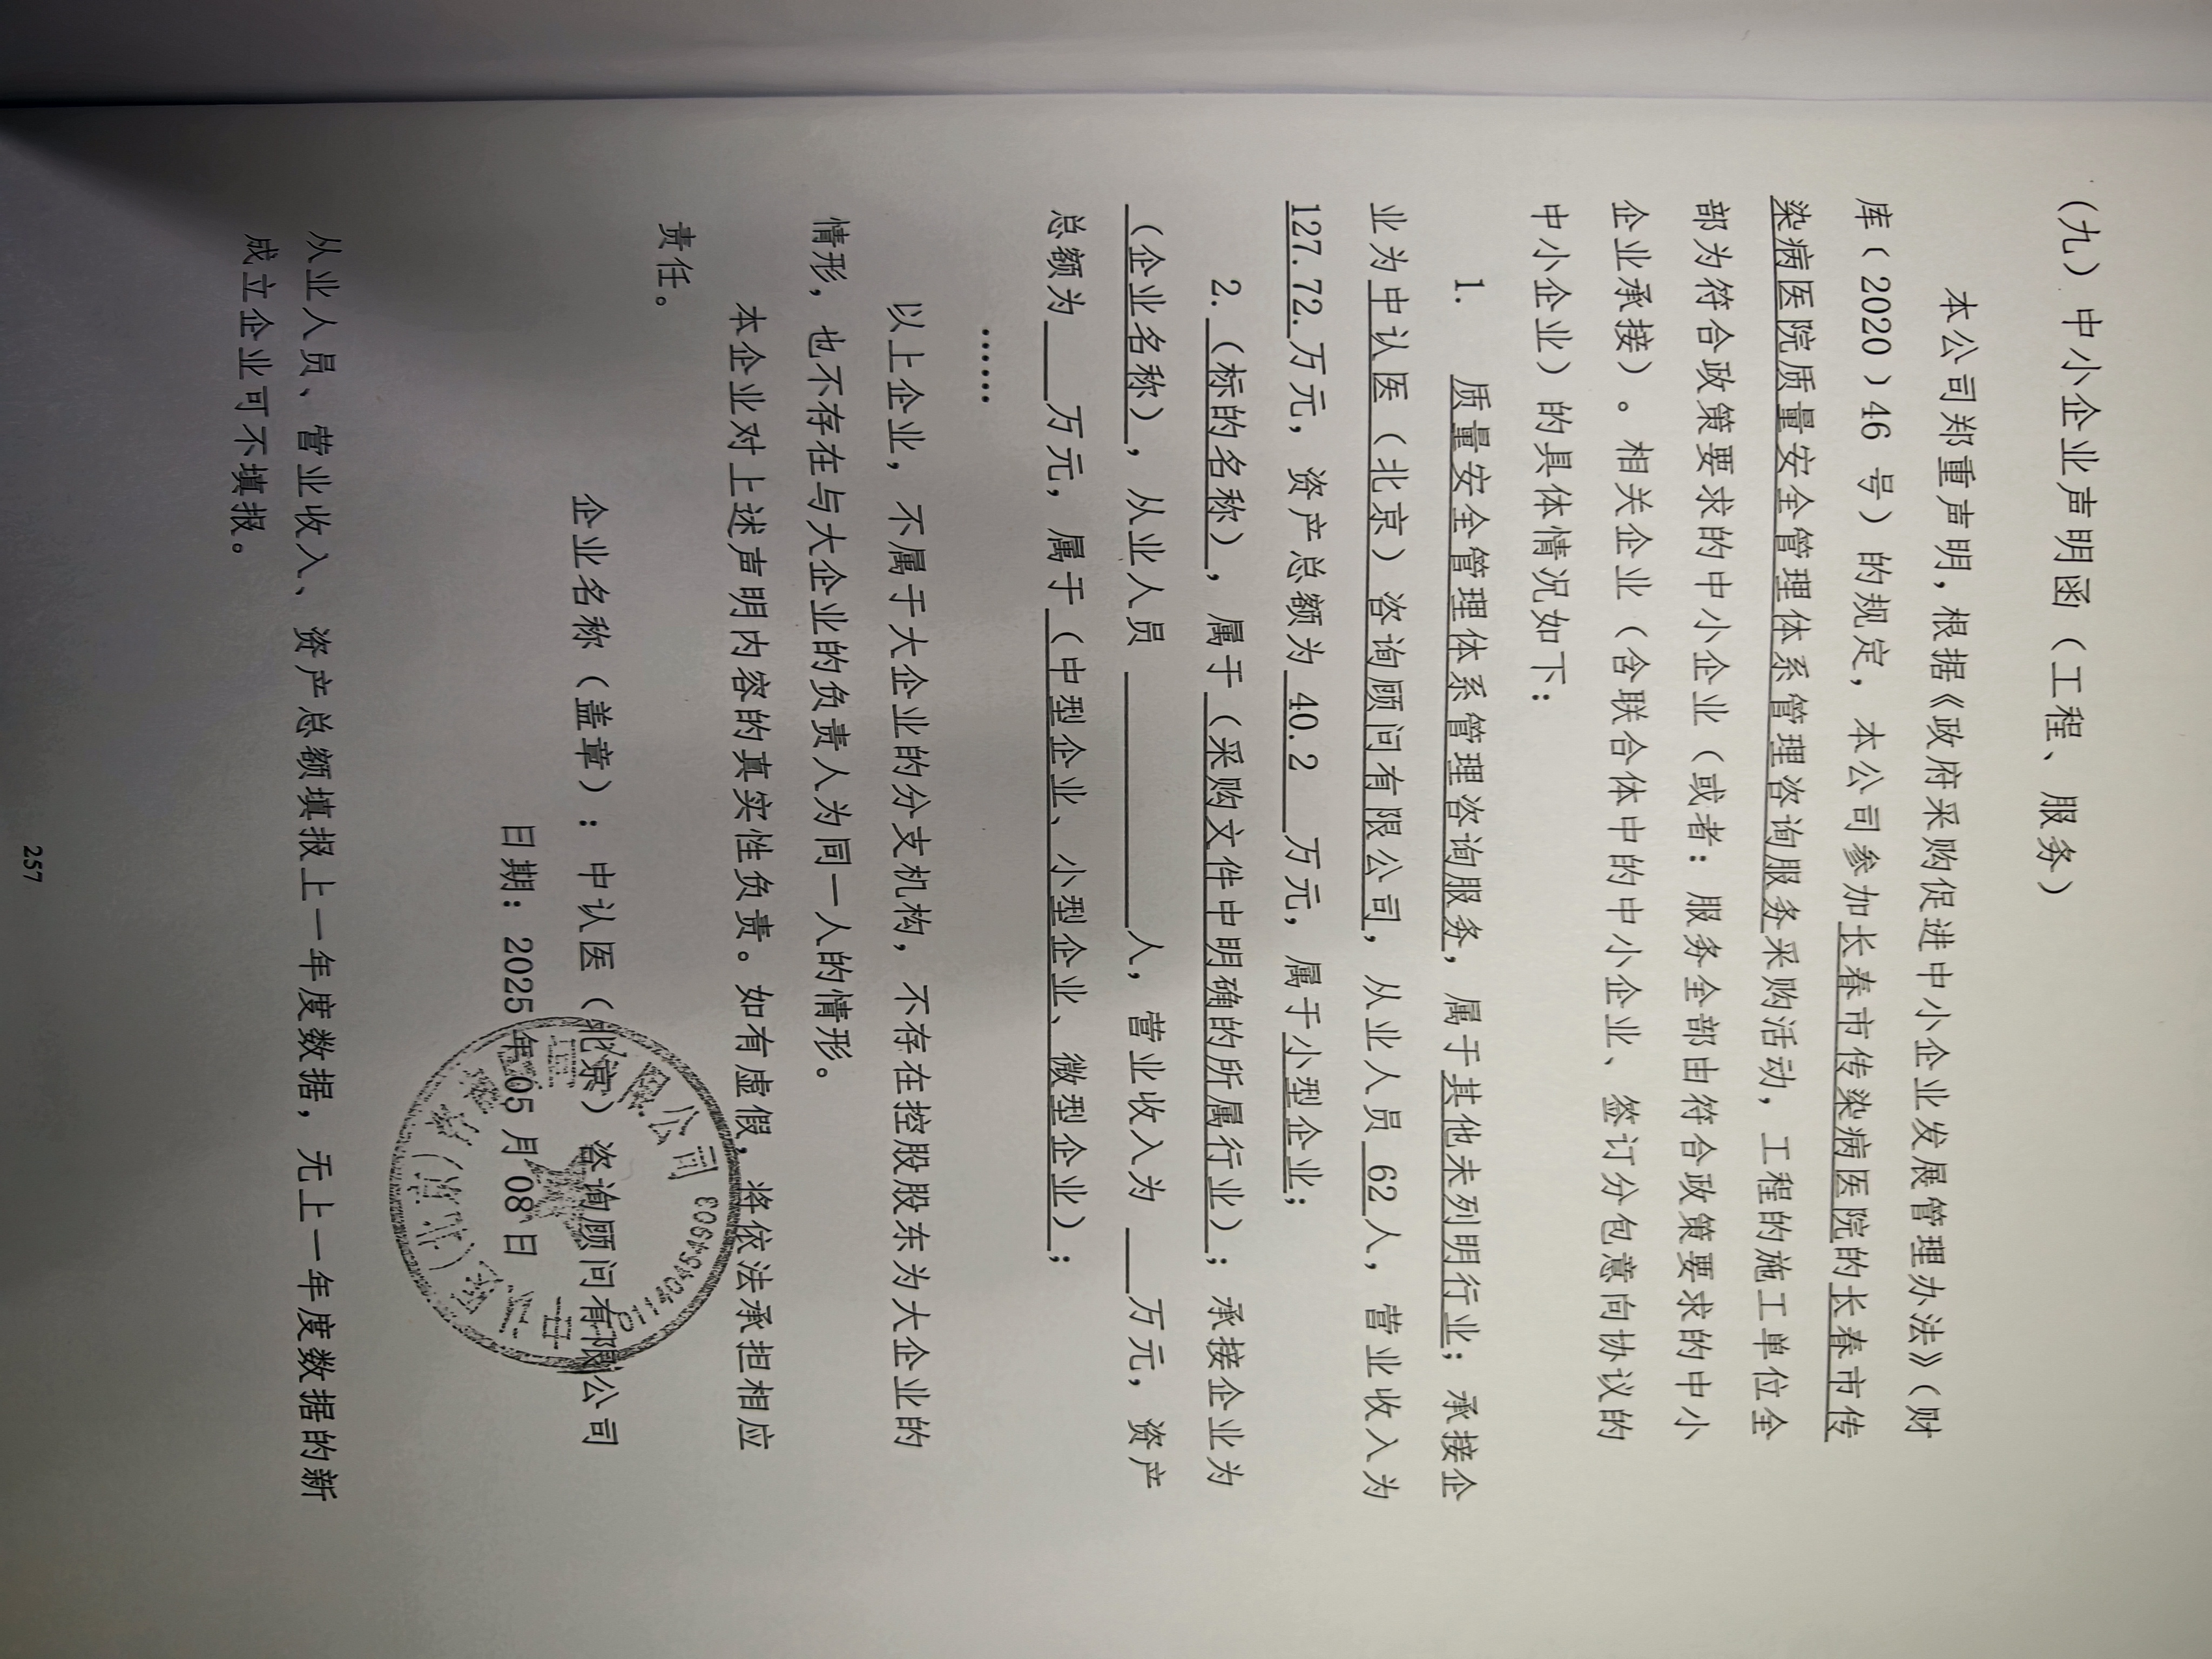 （九）中小企业声明函（工程、服务）
本公司郑重声明，根据《政府采购促进中小企业发展管理办法》（财
库（2020）46 号）的规定，本公司参加长春市传染病医院的长春市传
染病医院质量安全管理体系管理咨询服务采购活动，工程的施工单位全
部为符合政策要求的中小企业（或者：服务全部由符合政策要求的中小
企业承接）。相关企业（含联合体中的中小企业、签订分包意向协议的
中小企业）的具体情况如下：
1. 质量安全管理体系管理咨询服务，属于其他未列明行业；承接企
业为中认医（北京）咨询顾问有限公司，从业人员 62 人，营业收入为
127.72.万元，资产总额为 40.2 万元，属于小型企业；
2.（标的名称），属于（采购文件中明确的所属行业）；承接企业为
（企业名称），从业人员______人，营业收入为___万元，资产
总额为___万元，属于（中型企业、小型企业、微型企业）；
……
以上企业，不属于大企业的分支机构，不存在控股股东为大企业的
情形，也不存在与大企业的负责人为同一人的情形。
本企业对上述声明内容的真实性负责。如有虚假，将依法承担相应
责任。
企业名称（盖章）：中认医（北京）咨询顾问有限公司
日期：2025 年 05 月 08 日
从业人员、营业收入、资产总额填报上一年度数据，无上一年度数据的新
成立企业可不填报。
257